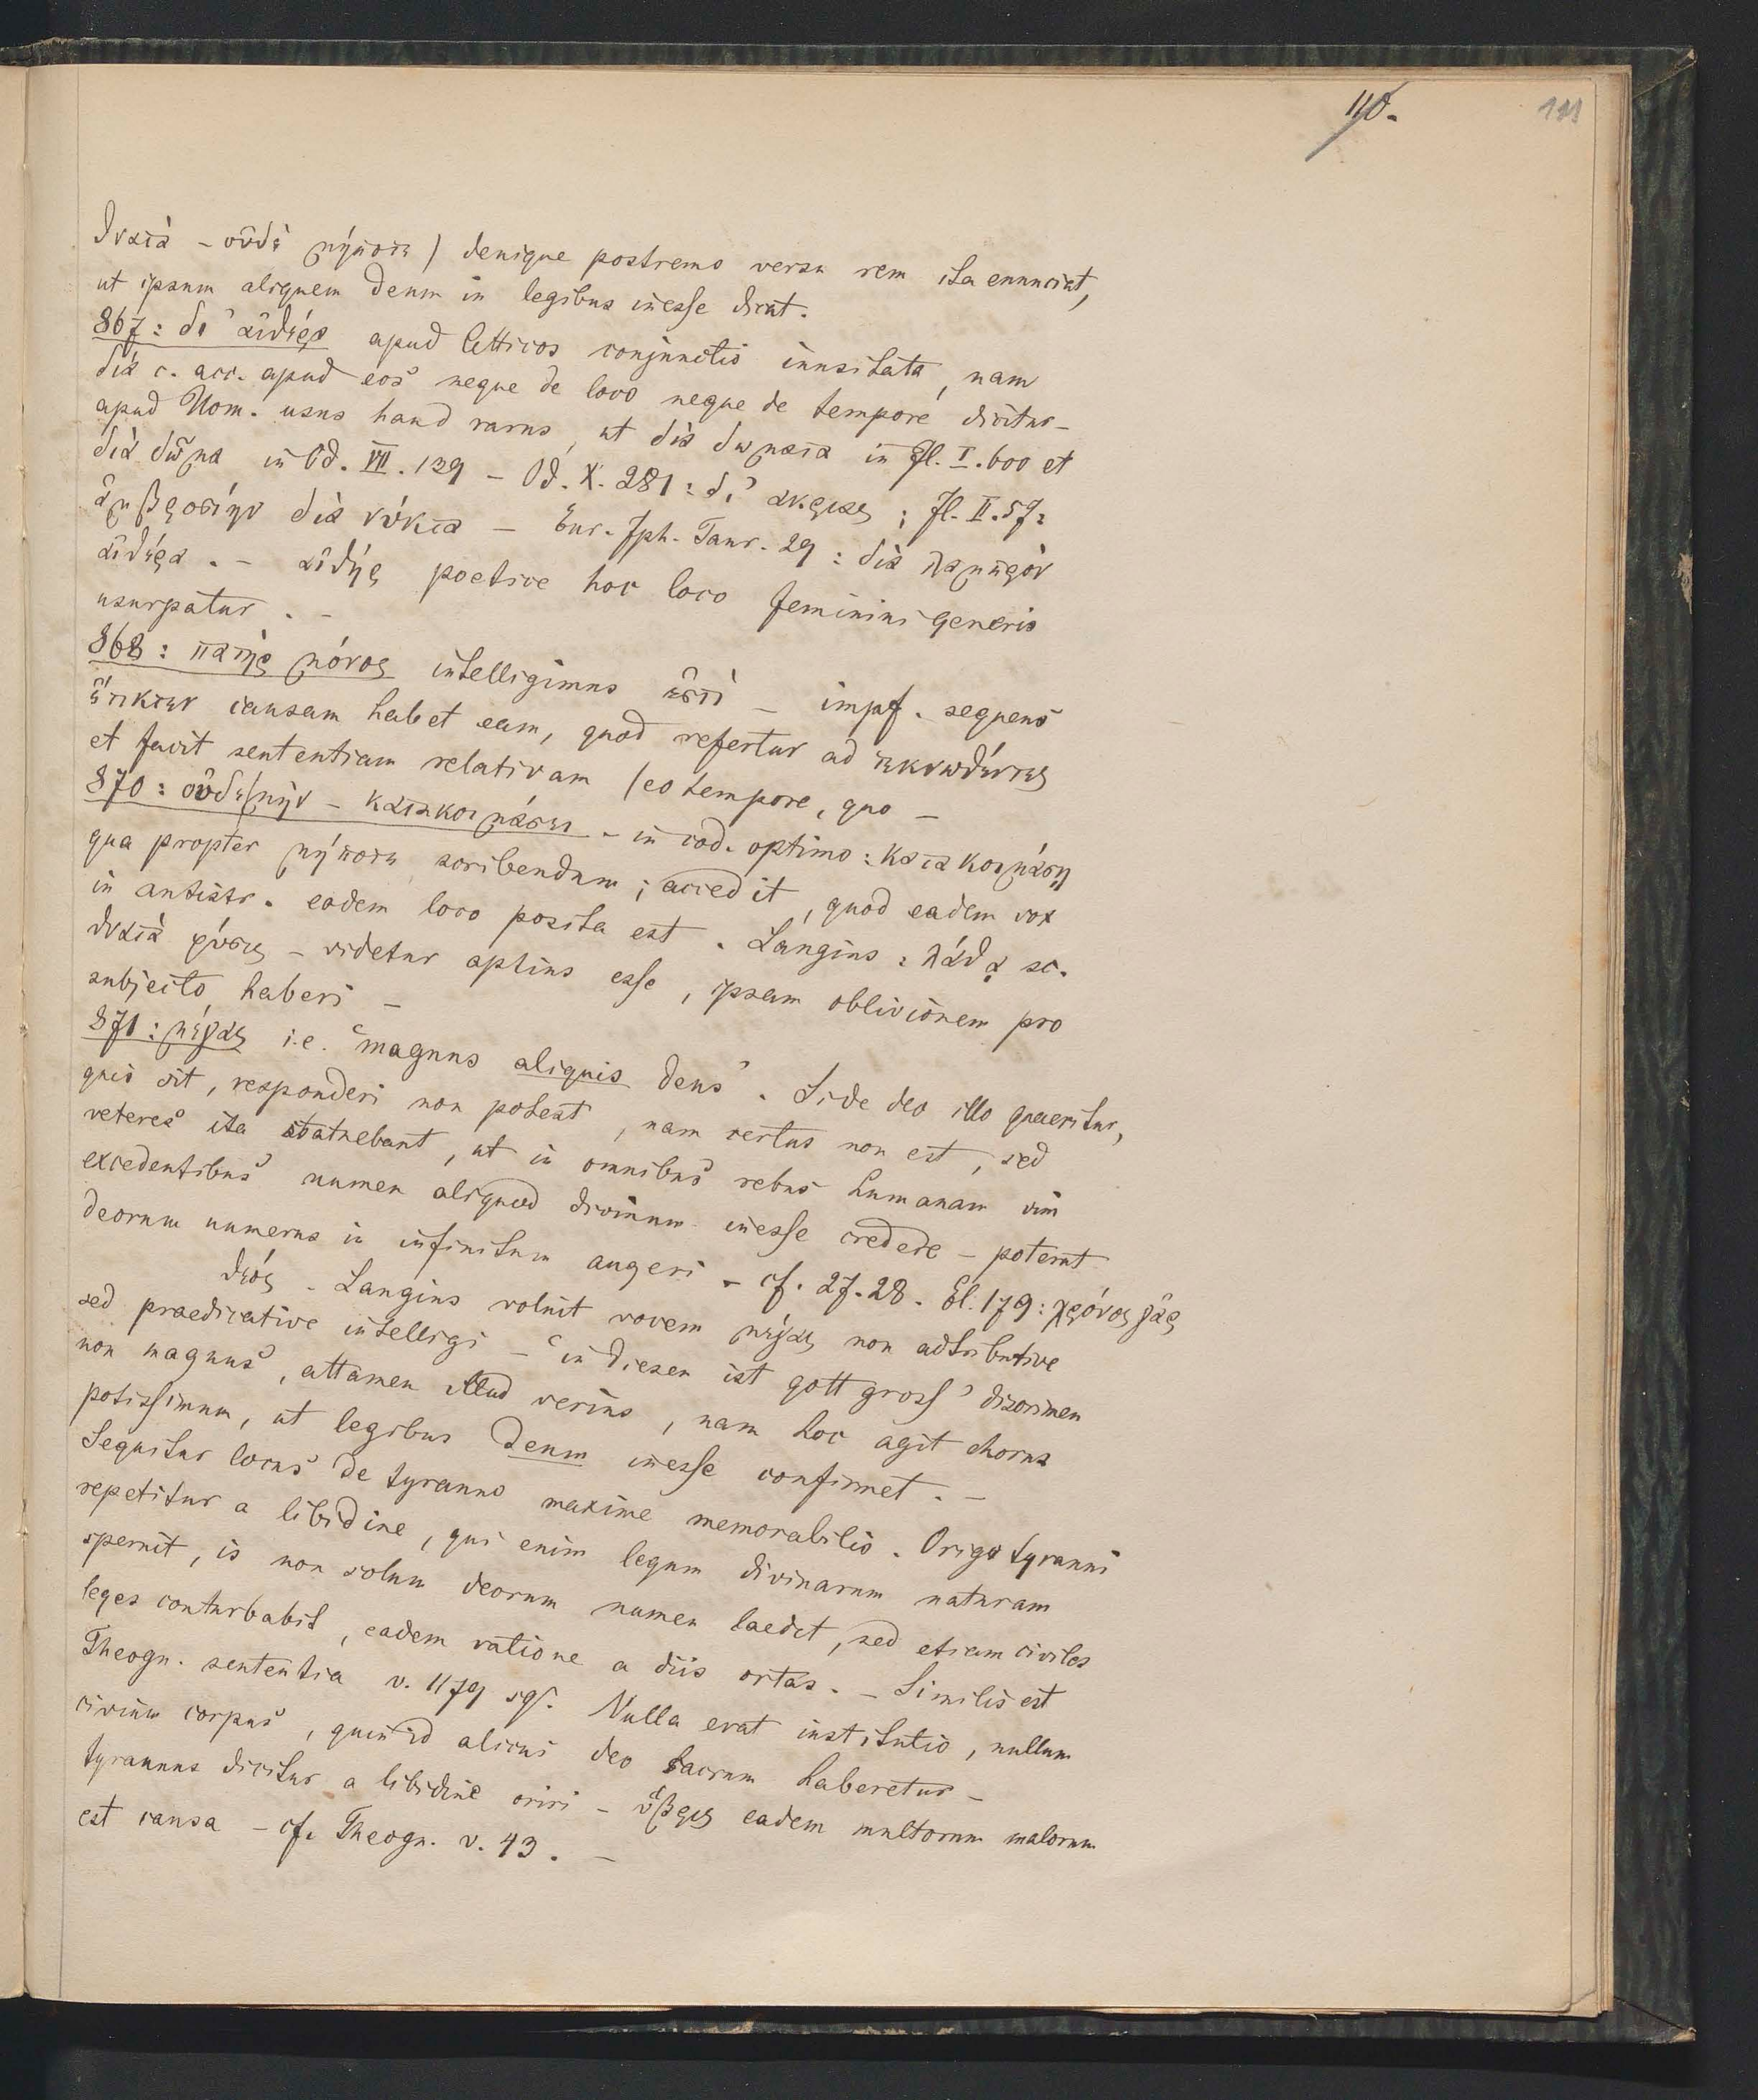 110.
111
θνατὰ – οὐδὲ μήποτε) denique postremo versu rem ita enunciat,
ut ipsum aliquem deum in legibus inesse dicat.
867: δι' αἰθέρα apud Atticos conjunctio inusitata, nam
διὰ c. acc. apud eos neque de loco neque de tempore dicitur –
apud Hom. usus haud rarus, ut διὰ δώματα in Il. I. 600 et
διὰ δῶμα in Od. VII. 139 – Od. X. 281: δι' ἄκριας; Il. II. 57:
ἀμβροσίην διὰ νύκτα – Eur. Iph. Taur. 29: διὰ λαμπρὸν
αἰθέρα. – αἰθὴρ poetice hoc loco feminini generis
usurpatur. –
868: πατὴρ μόνος intelligimus ἐστὶ – impf. sequens
ἔτικτεν causam habet eam, quod refertur ad τεκνωθέντες
et facit sententiam relativam (eo tempore, quo –
870: οὐδὲ μὴν – κατακοιμάσει – in cod. optimo: κατακοιμάσῃ
qua propter μήποτε scribendum; accedit, quod eadem vox
in antistr. eodem loco posita est. Langius: λάθᾳ sc.
θνατὰ φύσις – videtur aptius esse, ipsam oblivionem pro
subjecto haberi –
871: μέγας i.e. 'magnus aliquis deus'. Si de deo illo quaeritur,
quis sit, responderi non potest, nam certus non est, sed
veteres ita statuebant, ut in omnibus rebus humanam vim
excedentibus numen aliquod divinum inesse crederet – poterat
deorum numerus in infinitum augeri – cf. 27. 28. El. 179: χρόνος γὰρ
θεός – Langius voluit vocem μέγας non adtributive
sed praedicative intelligi – 'in diesen ist gott gross' discrimen
non magnus, attamen illud verius, nam hoc agit chorus
potissimum, ut legibus deum inesse confirmet. –
Sequitur locus de tyranno maxime memorabilis. Origo tyranni
repetitur a libidine, qui enim legum divinarum naturam
spernit, is non solum deorum numen laedet, sed etiam civiles
leges conturbabit, eadem ratione a diis ortas. – Similis est
Theogn. sententia v. 1179 sqf. Nulla erat institutio, nullum
civium corpus, quin id alicui deo sacrum haberetur –
tyrannus dicitur a libidine oriri – ὕβρις eadem multorum malorum
est causa – cf. Theogn. v. 43. –